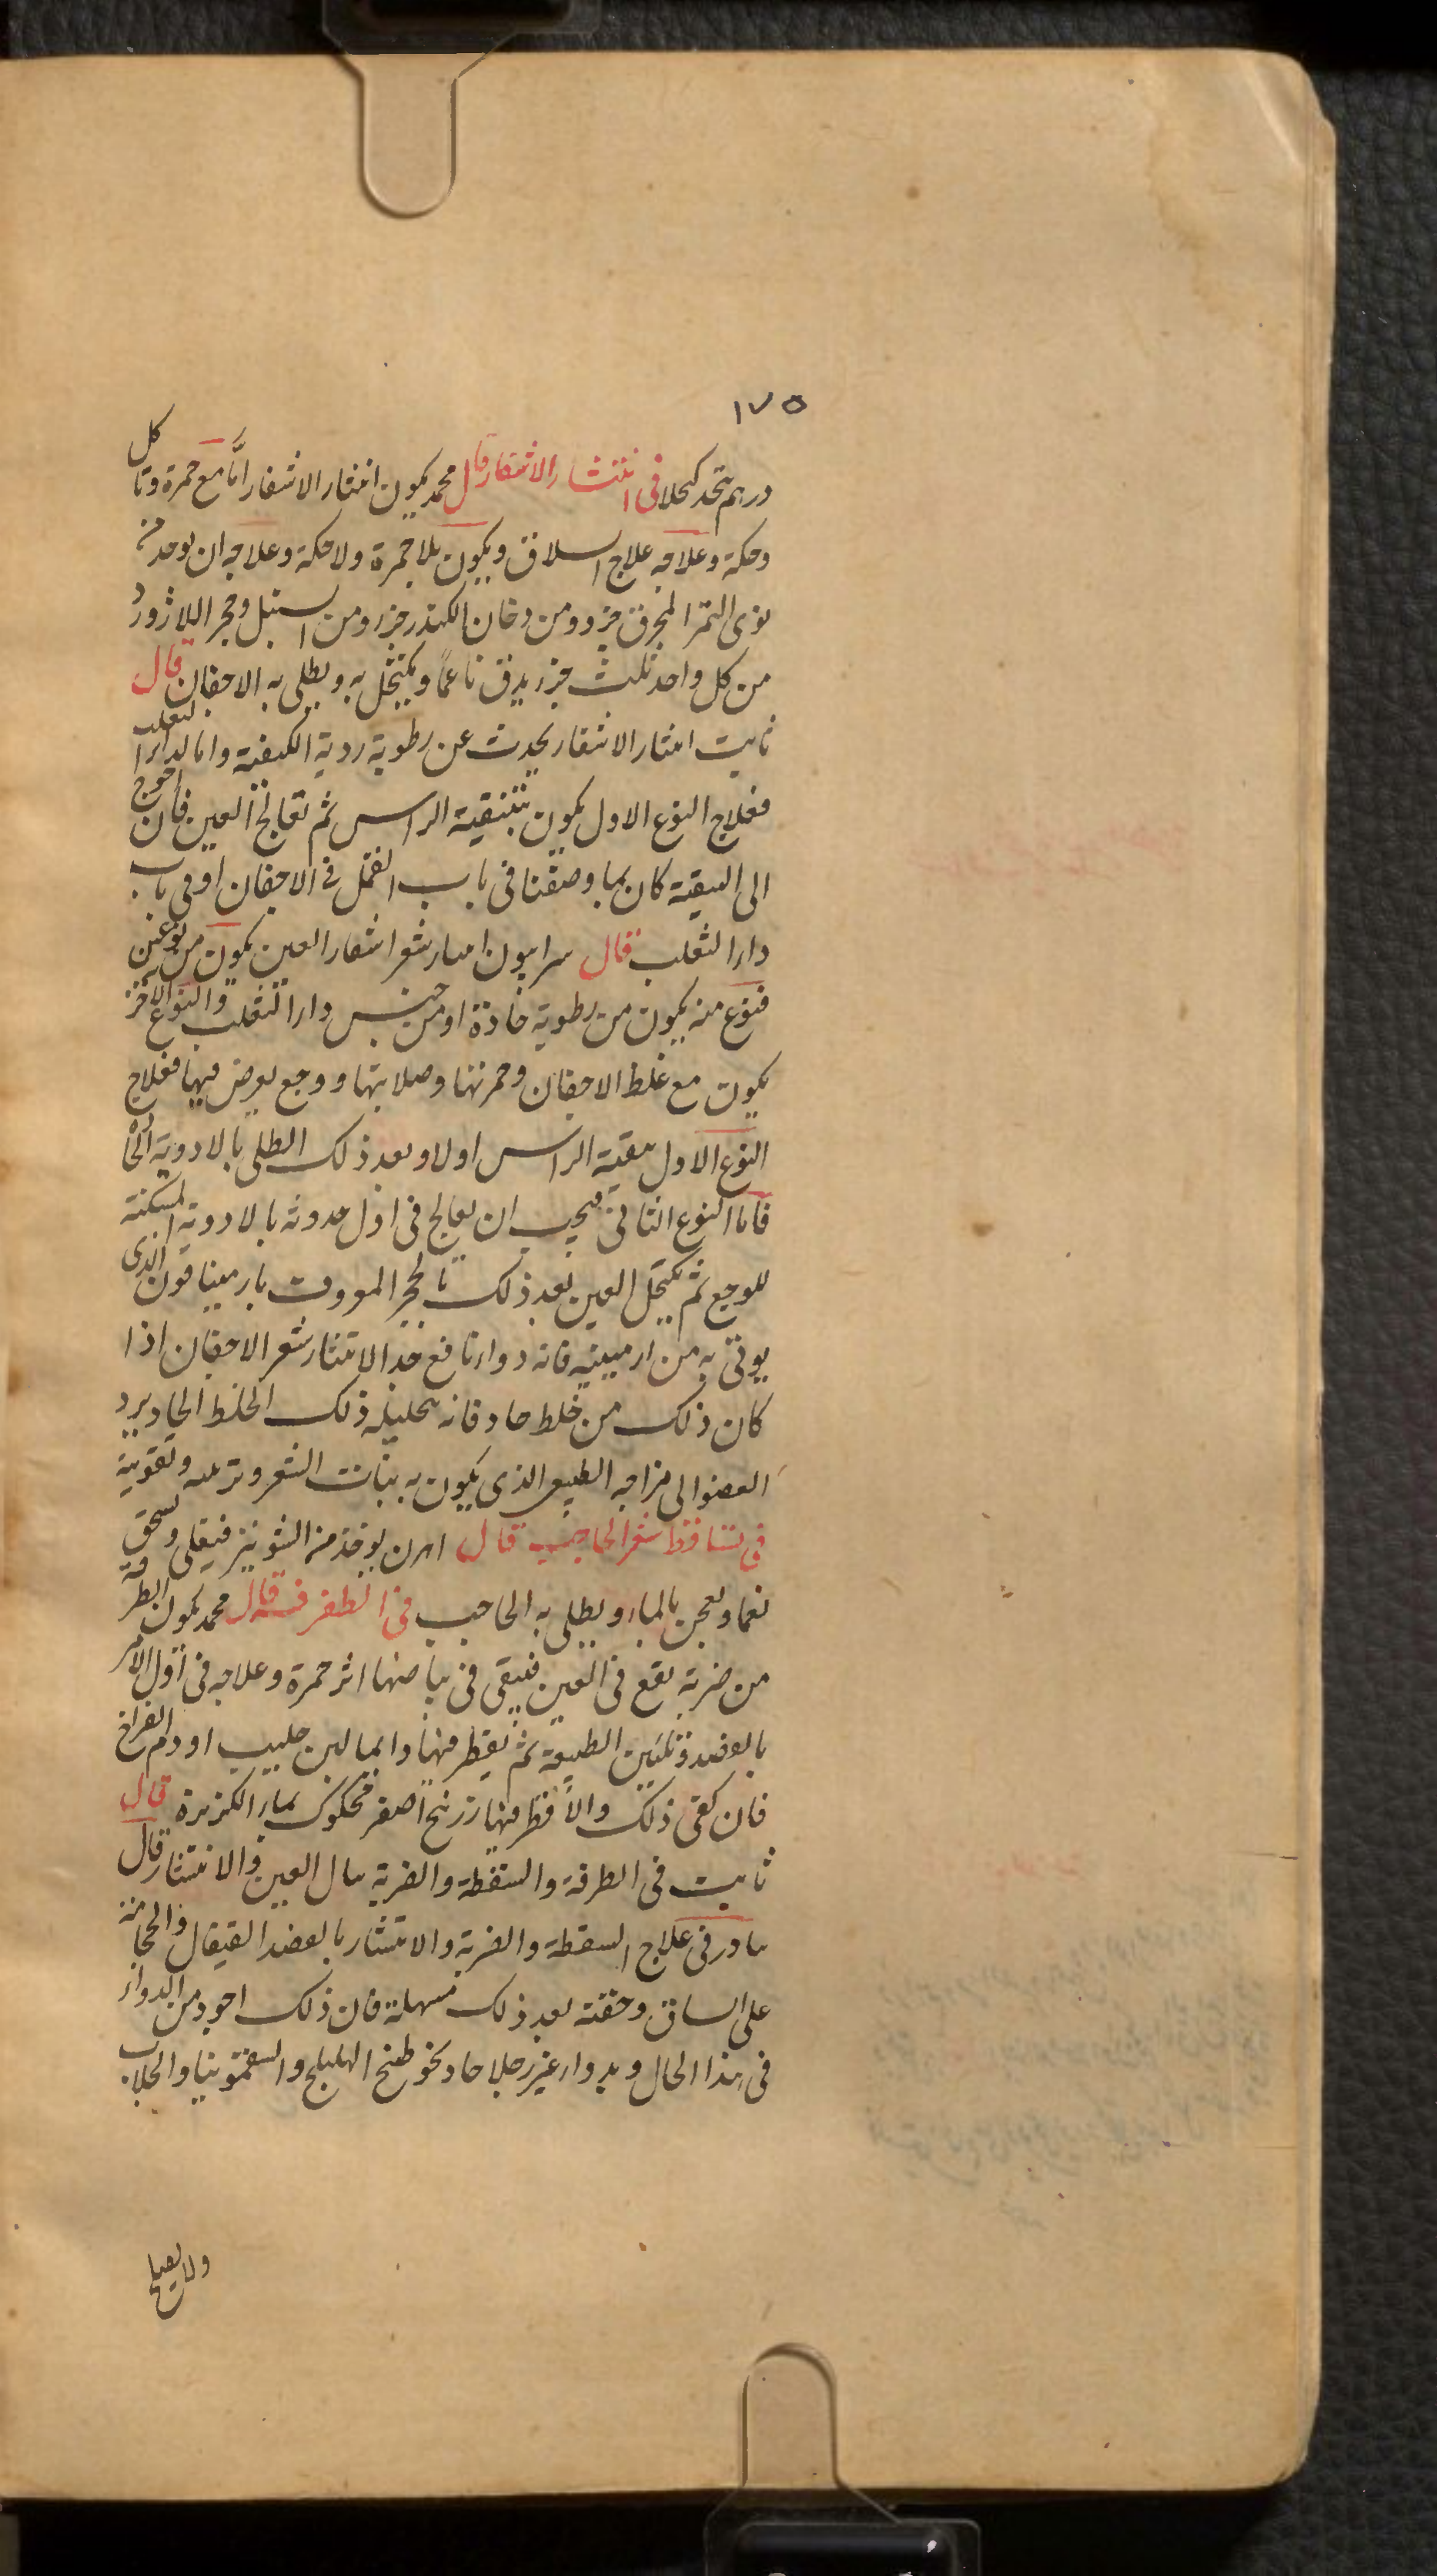 ١٧٥
درهم يتخذ كحلا في انتشار الاشفار قال محمد يكون انتشار الاشفار اما مع حمرة وتاكل
وحكة وعلاجه علاج السلاق ويكون بلا حمرة ولا حكة وعلاجه ان يوخذ من
نوى التمر المحرق جزء ومن دخان الكندر جزء ومن السنبل وحجر اللاژورد
من كل واحد ثلث جزء يدق ناعماً ويكتحل به ويطلى به الاجفان قال
ثابت انتثار الاشفار يحدث عن رطوبة ردية الكيفية واما لداء الثعلب
فعلاج النوع الاول يكون بتنقية الراس ثم تعالج العين فان احوج
الى التنقية كان بما وصفنا في باب القمل في الاجفان او في باب
داء الثعلب قال سرابيون انتثار شعر اشفار العين يكون من نوعين
فنوع منه يكون من رطوبة حادة او من جنس داء الثعلب والنوع الاخر
يكون مع غلظ الاجفان وحمرتها وصلابتها ووجع يعرض فيها فعلاج
النوع الاول تنقية الراس اولا وبعد ذلك الطلى بالادوية
فاما النوع الثاني فيجب ان يعالج في اول حدوثه بالادوية المسكنة
للوجع ثم تكتحل العين بعد ذلك بالحجر المعروف بارمينا قون الذى
يوتى به من ارمينيه فانه دواء نافع جدا لانتثار شعر الاجفان اذا
كان ذلك من خلط حاد فانه بتحليله ذلك الخلط الحاد يرد
العضو الى مزاجه الطبيعى الذى يكون به نبات الشعر وتقويته
في تساقط شعر الحاجب قال اهرن يوخذ من الشونيز فيقلى ويسحق
نعما ويعجن بالماء ويطلى به الحاجب في الطفرفة قال محمد يكون الطرفة
من ضربة تقع في العين فيبقى في بياضها اثر حمرة وعلاجه في اول الامر
بالفصد وتليين الطبيعة ثم يقطر فيها دايما لبن حليب او دم الفراخ
فان كفى ذلك والا قطر فيها زرنيخ اصفر محكوك بماء الكزبرة قال
ثابت في الطرفة والسقطة والضربة ينال العين والانتشار قال
بادر في علاج السقطة والضربة والانتشار بالفصد القيفال والحجامة
على الساق وحقنه بعد ذلك مسهلة فان ذلك اجود من الدواء
في هذا الحال وبدواء غير حاد نحو طبخ الهليلج والسقمونيا والجلاب
ولا يعيا